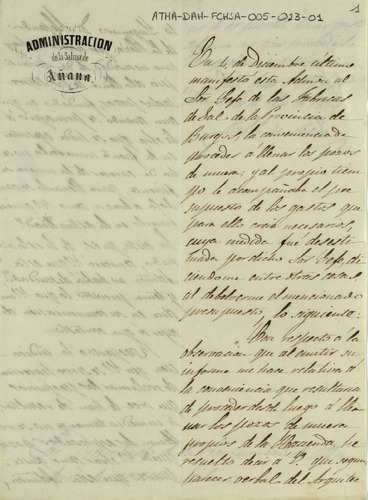 ATHA-DAH-FCHSA-005-023-01
1
ADMINISTRACION
de la Salina de
Añana
En 4 de Diciembre último
manifestó esta Admón al
Sor Gefe de las Fábricas
de Sal de la Provincia de
Burgos, la conveniencia de
proceder á llenar los pozos
de muera; y al propio tiem
po le acompañaba el pre
supuesto de los gastos que
para ello eran necesarios,
cuya medida fué desesti
mada por dicho Sor Gefe, di
ciendome entre otras cosas
al debolverme el mencionado
presupuesto, lo siguiente:
"Con respecto á la
observacion que al emitir su
informe me hace relativa á
la conveniencia que resultaria
de proceder desde luego á lle
nar los pozos de muera
propios de la Hacienda, he
resuelto decir á V. que segun
parecer verbal del Arquitec